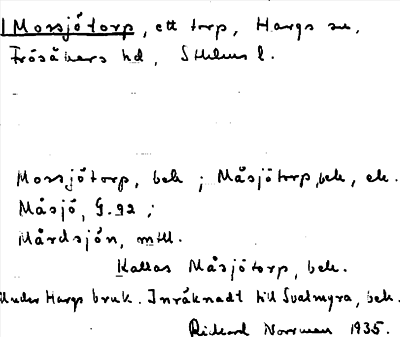 Mossjötorp, ett torp, Hargs sn,
Frösåkers hd, Sthlms l.
Mossjötorp, bek ; Måsjötorp, bek, ek.
Måsjö, G.92 ;
Mårdsjön, mtll.
Kallas Måsjötorp, bek.
Under Hargs bruk. Inräknadt till Svalmyra, bek.
Rickard Norrman 1935.